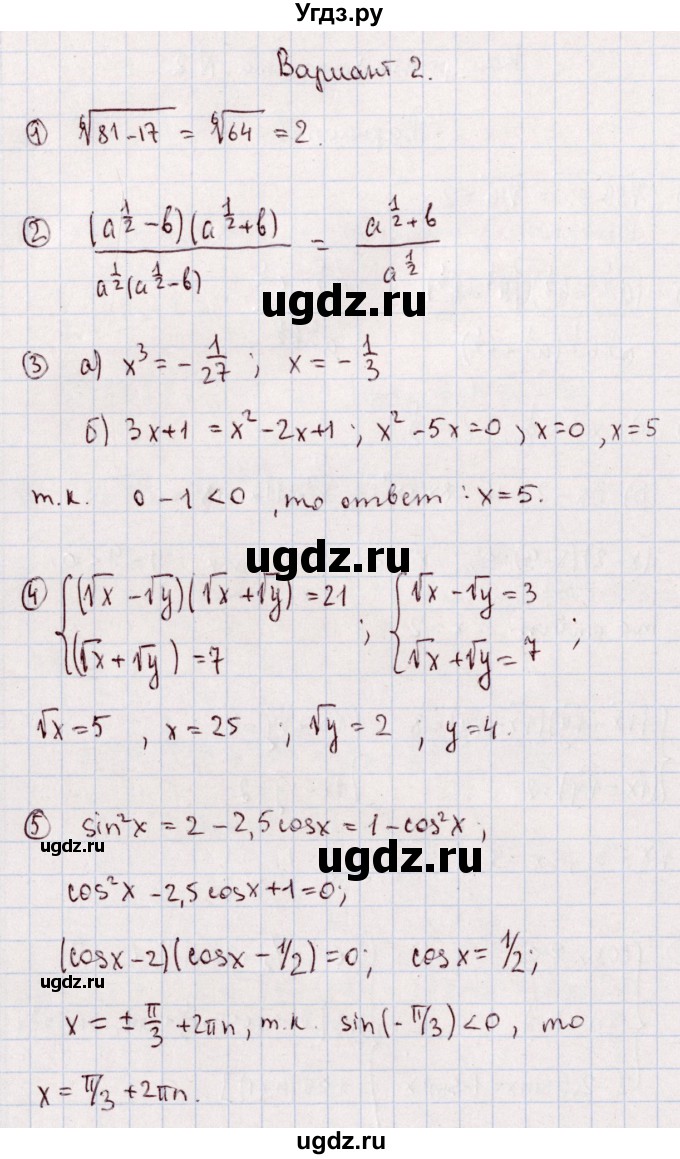 Угдз.ру
Вариант 2.
① ⁶√81-17 = ⁶√64 = 2.
② (a^(1/2) - b)(a^(1/2) + b) / a^(1/2)(a^(1/2) - b) = a^(1/2) + b / a^(1/2)
ugdz.ru
③ а) x³ = - 1/27 ; x = - 1/3
б) 3x+1 = x² -2x+1 ; x² -5x=0 , x=0 , x=5
т.к. 0-1<0 , то ответ: x=5.
ugdz.ru
④ { (√x - √y)(√x + √y) = 21 ; { √x - √y = 3
(√x + √y) = 7 √x + √y = 7 ;
√x = 5 , x = 25 ; √y = 2 , y = 4.
⑤ sin²x = 2 - 2,5 cosx = 1 - cos²x ;
ugdz.ru
ugdz.ru
cos²x - 2,5 cosx + 1 = 0;
(cosx - 2)(cosx - 1/2) = 0; cosx = 1/2;
ugdz.ru
x = ± π/3 + 2πn, т.к. sin(-π/3) < 0, то
x = π/3 + 2πn.
ugdz.ru
ugdz.ru